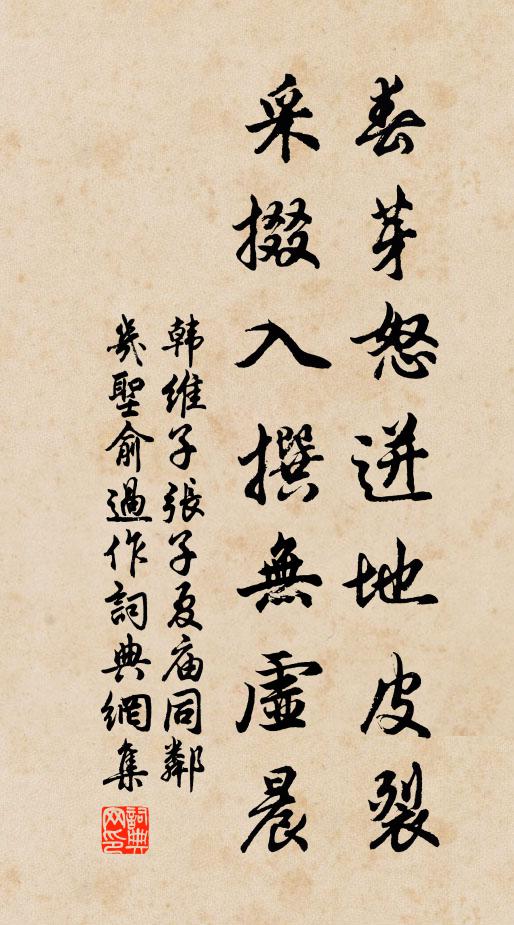 春芽怒迸地皮裂
采掇入撰無虛晨
韩維子張子夏庙同鄰
幾聖俞過作詞典網集
詞典网印